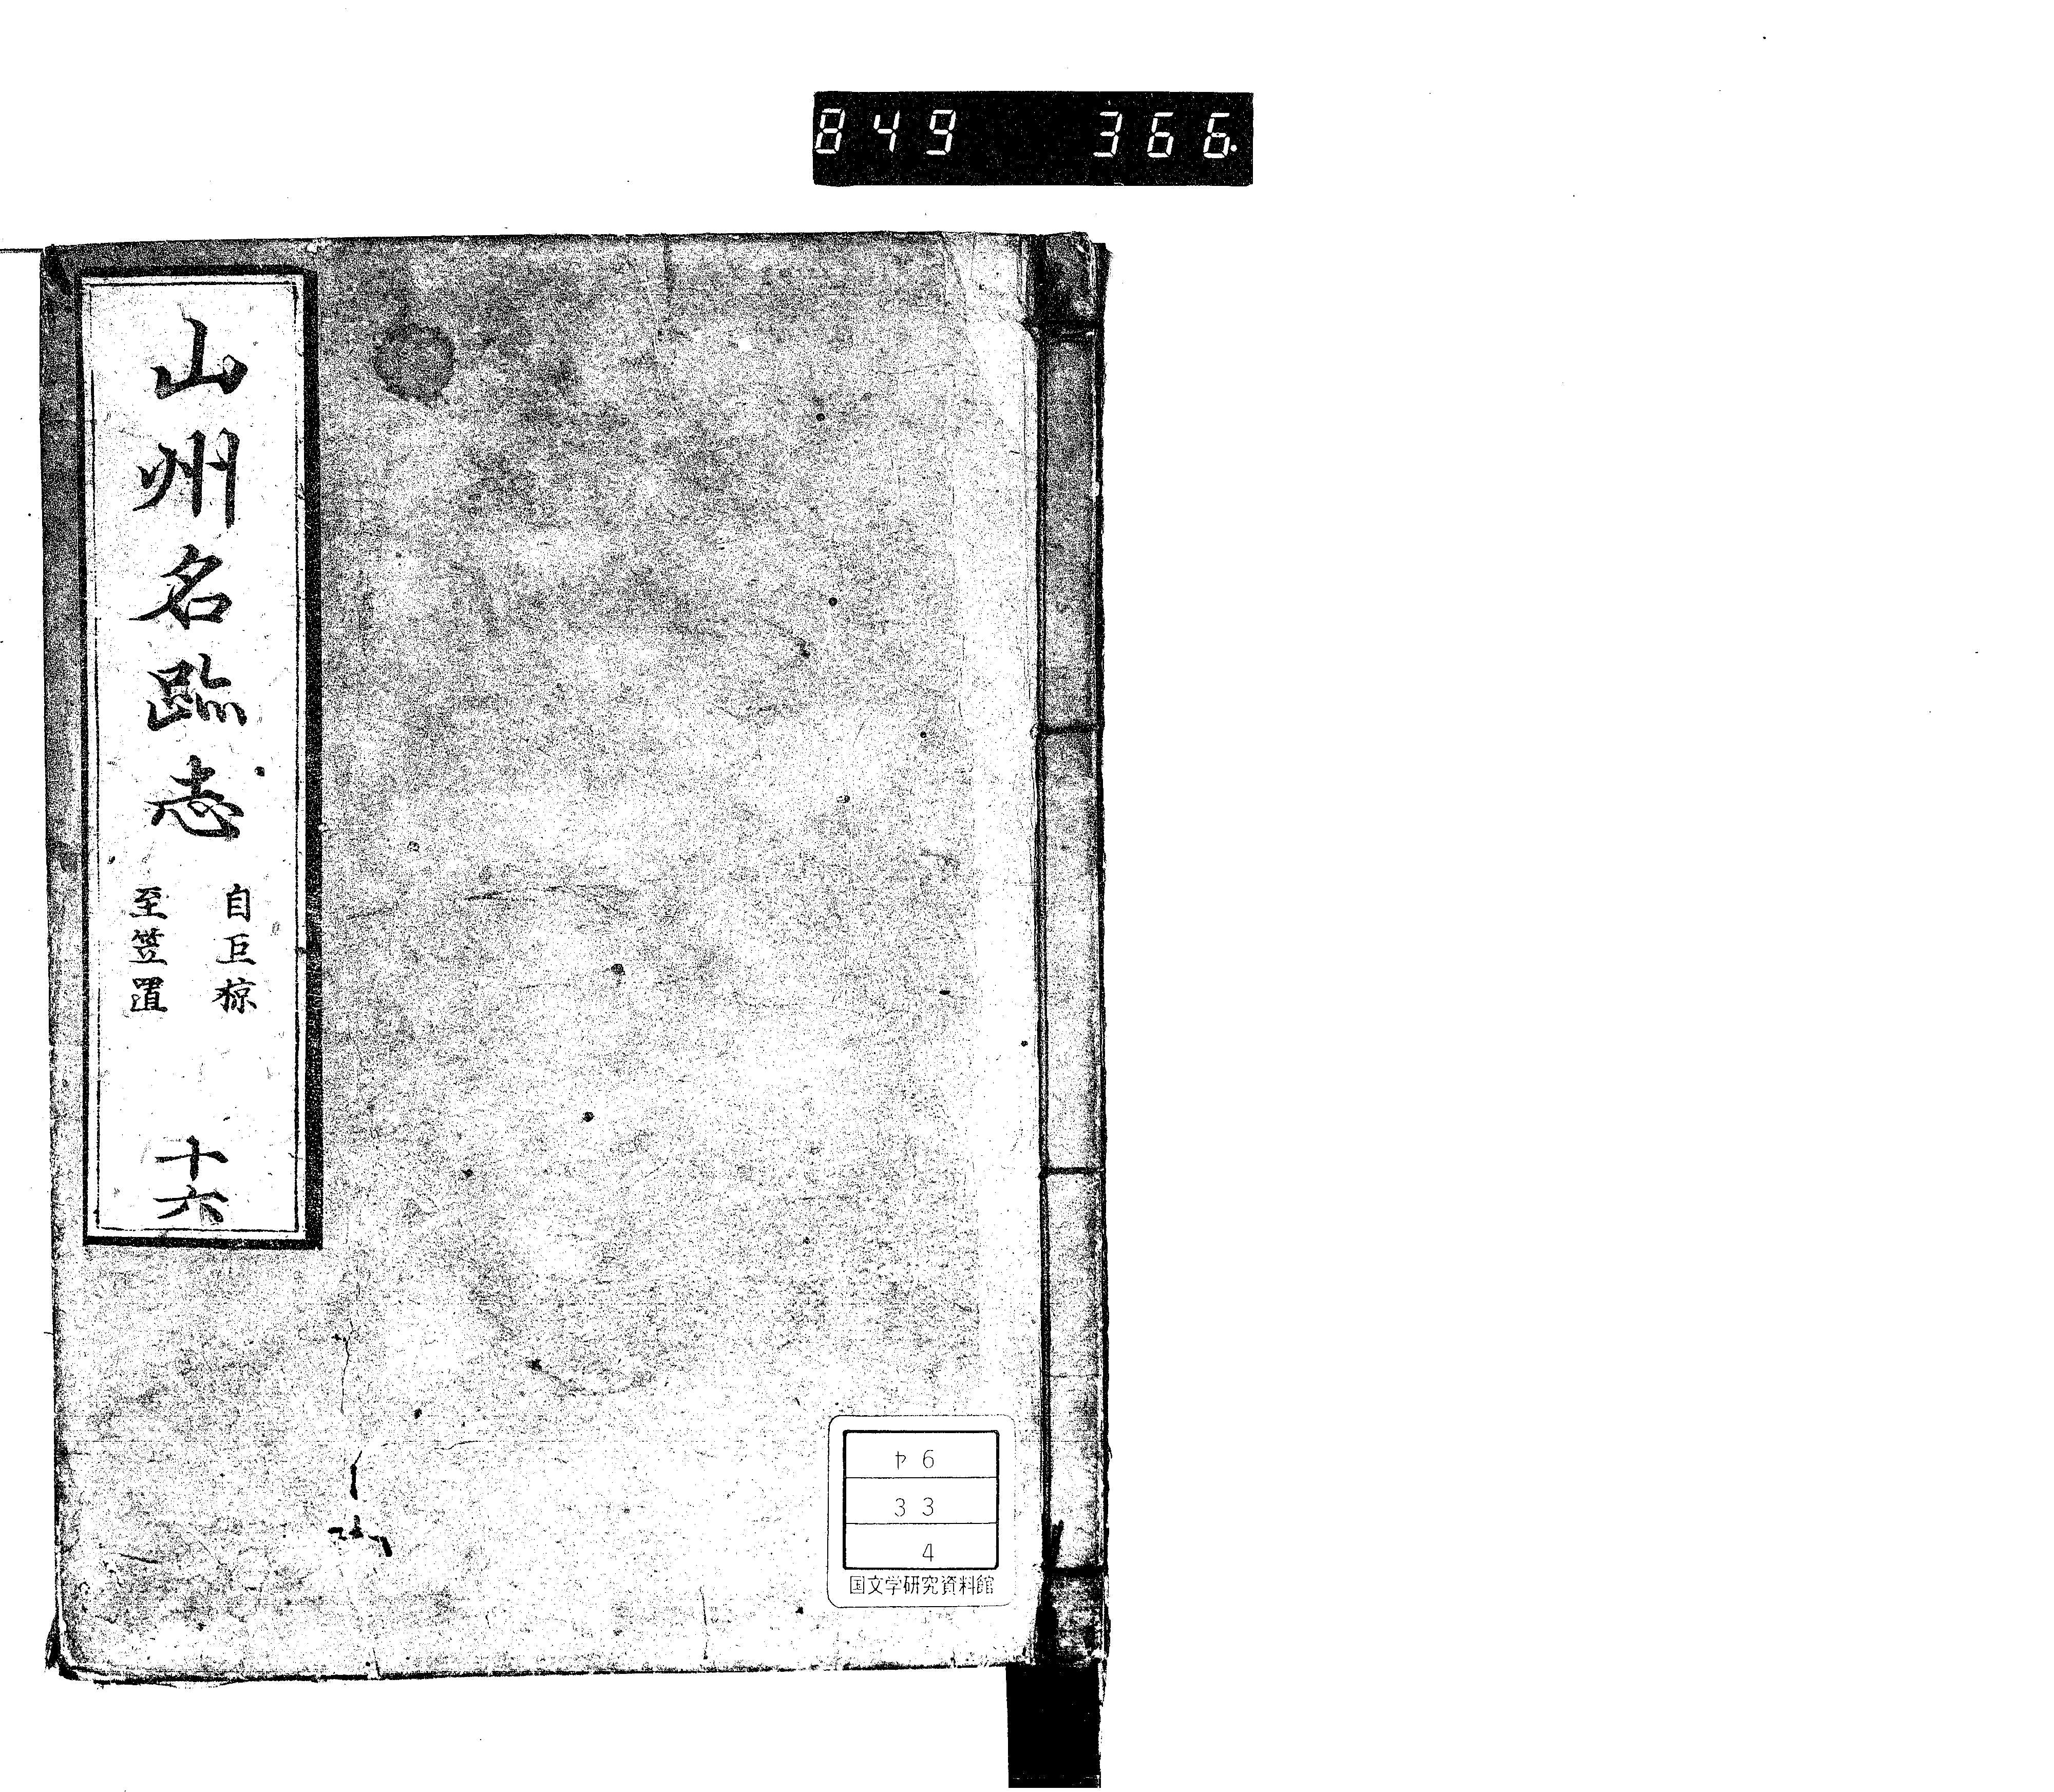 849 366.
山州名跡志
自巨椋
至笠置
十六
ヤ6
33
4
国文学研究資料館